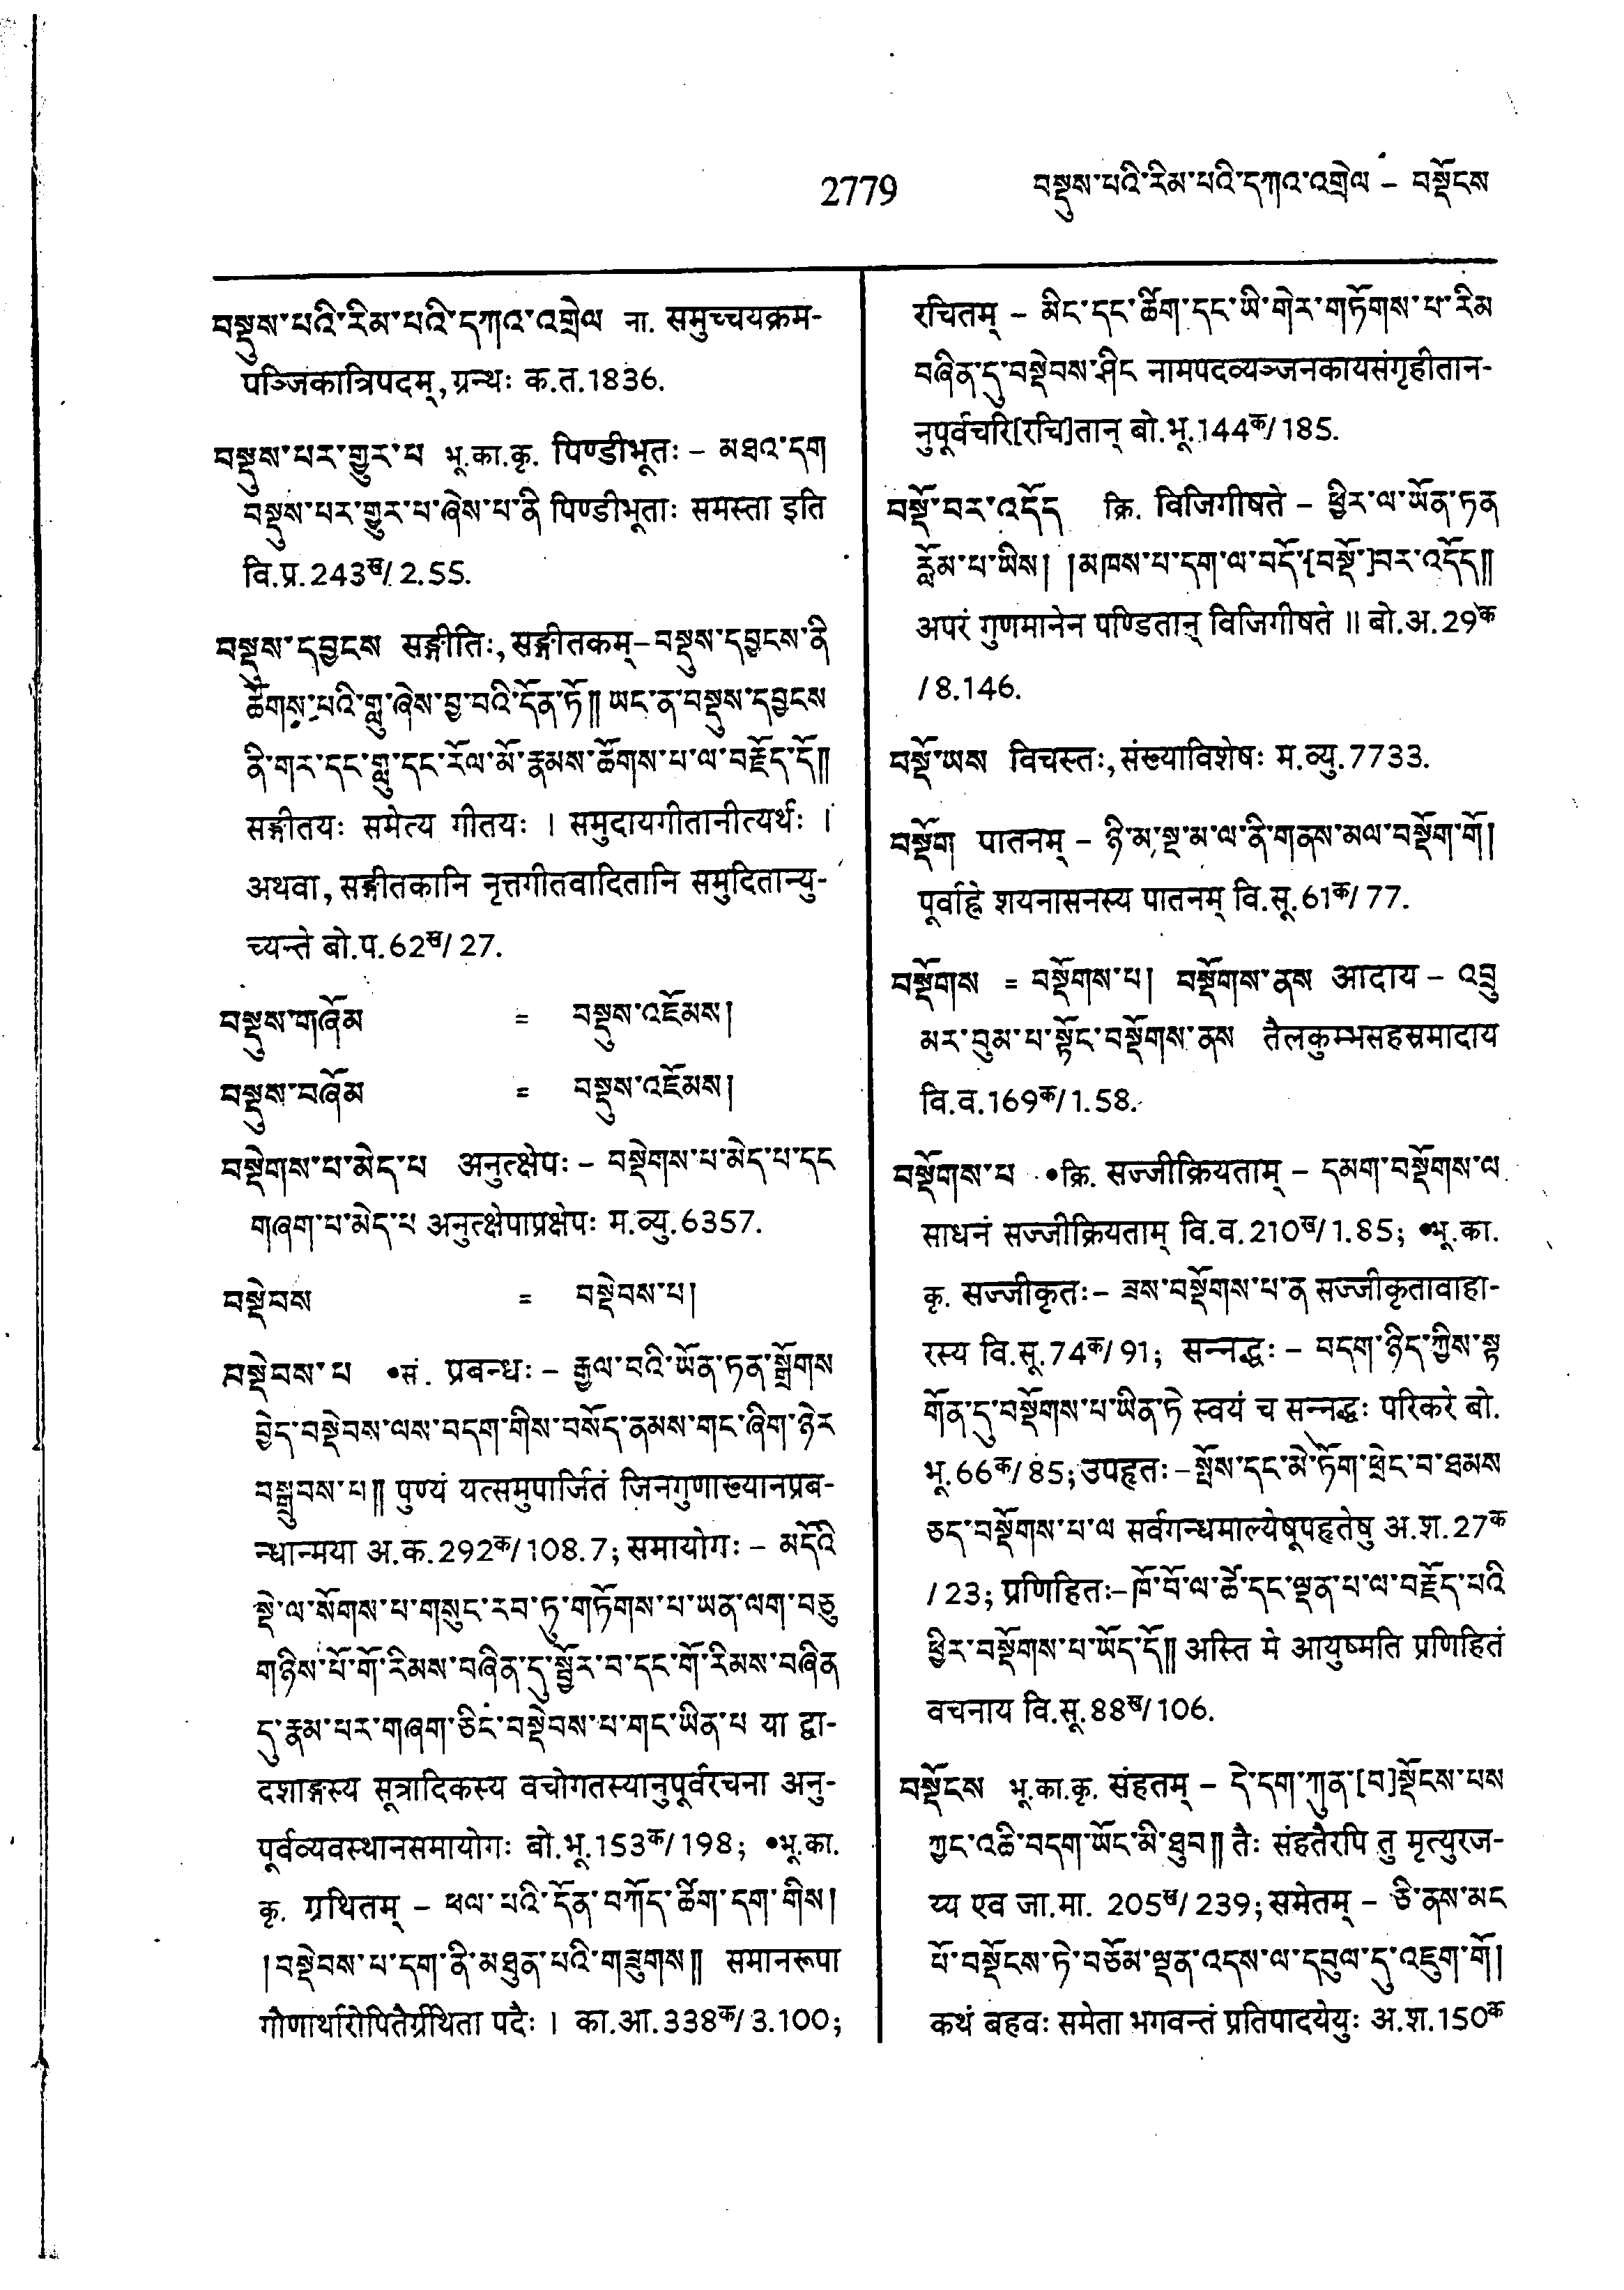 2779
བསྡུས་པའི་རིམ་པའི་དཀའ་འགྲེལ – བསྡོངས
བསྡུས་པའི་རིམ་པའི་དཀའ་འགྲེལ ना. समुच्चयक्रम-
पञ्जिकात्रिपदम्, ग्रन्थः क.त.1836.
བསྡུས་པར་གྱུར་པ भू.का.कृ. पिण्डीभूतः – མཐའ་དག
བསྡུས་པར་གྱུར་པ་ཞེས་པ་ནི पिण्डीभूताः समस्ता इति
वि.प्र.243ख/2.55.
བསྡུས་དབྱངས सङ्गीतिः, सङ्गीतकम्–བསྡུས་དབྱངས་ནི
ཚོགས་པའི་གླུ་ཞེས་བྱ་བའི་དོན་ཏོ༎ ཡང་ན་བསྡུས་དབྱངས
ནི་གར་དང་གླུ་དང་རོལ་མོ་རྣམས་ཚོགས་པ་ལ་བརྗོད་དོ༎
सङ्गीतयः समेत्य गीतयः । समुदायगीतानीत्यर्थः ।
अथवा, सङ्गीतकानि नृत्तगीतवादितानि समुदितान्यु-
च्यन्ते बो.प.62ख/27.
བསྡུས་གཞོམ = བསྡུས་འཇོམས།
བསྡུས་བཞོམ = བསྡུས་འཇོམས།
བསྡེགས་པ་མེད་པ अनुत्क्षेपः – བསྡེགས་པ་མེད་པ་དང
གཞག་པ་མེད་པ अनुत्क्षेपाप्रक्षेपः म.व्यु.6357.
བསྡེབས = བསྡེབས་པ།
བསྡེབས་པ •सं. प्रबन्धः – རྒྱལ་བའི་ཡོན་ཏན་སྒྲོགས
བྱེད་བསྡེབས་ལས་བདག་གིས་བསོད་ནམས་གང་ཞིག་ཉེར
བསྒྲུབས་པ༎ पुण्यं यत्समुपार्जितं जिनगुणाख्यानप्रब-
न्धान्मया अ.क.292क/108.7; समायोगः – མདོའི
སྡེ་ལ་སོགས་པ་གསུང་རབ་ཏུ་གཏོགས་པ་ཡན་ལག་བཅུ
གཉིས་པོ་གོ་རིམས་བཞིན་དུ་སྦྱོར་བ་དང་གོ་རིམས་བཞིན
དུ་རྣམ་པར་གཞག་ཅིང་བསྡེབས་པ་གང་ཡིན་པ या द्वा-
दशाङ्गस्य सूत्रादिकस्य वचोगतस्यानुपूर्वरचना अनु-
पूर्वव्यवस्थानसमायोगः बो.भू.153क/198; •भू.का.
कृ. ग्रथितम् – ཕལ་པའི་དོན་བཀོད་ཚིག་དག་གིས།
།བསྡེབས་པ་དག་ནི་མཐུན་པའི་གཟུགས༎ समानरूपा
गौणार्थारोपितैर्ग्रथिता पदैः । का.आ.338क/3.100;
रचितम् – མིང་དང་ཚིག་དང་ཡི་གེར་གཏོགས་པ་རིམ
བཞིན་དུ་བསྡེབས་ཤིང नामपदव्यञ्जनकायसंगृहीतान-
नुपूर्वचरि[रचि]तान् बो.भू.144क/185.
བསྡོ་བར་འདོད क्रि. विजिगीषते – ཕྱིར་ལ་ཡོན་ཏན
རློམ་པ་ཡིས། །མཁས་པ་དག་ལ་བདོ་[བསྡོ་]བར་འདོད༎
अपरं गुणमानेन पण्डितान् विजिगीषते ॥ बो.अ.29क
/8.146.
བསྡོ་ཡས विचस्तः, संख्याविशेषः म.व्यु.7733.
བསྡོག पातनम् – ཉི་མ་སྔ་མ་ལ་ནི་གནས་མལ་བསྡོག་གོ།
पूर्वाह्ने शयनासनस्य पातनम् वि.सू.61क/77.
བསྡོགས = བསྡོགས་པ། བསྡོགས་ནས आदाय – འབྲུ
མར་བུམ་པ་སྟོང་བསྡོགས་ནས तैलकुम्भसहस्रमादाय
वि.व.169क/1.58.
བསྡོགས་པ •क्रि. सज्जीक्रियताम् – དམག་བསྡོགས་ལ
साधनं सज्जीक्रियताम् वि.व.210ख/1.85; •भू.का.
कृ. सज्जीकृतः – ཟས་བསྡོགས་པ་ན सज्जीकृतावाहा-
रस्य वि.सू.74क/91; सन्नद्धः – བདག་ཉིད་ཀྱིས་སྟ
གོན་དུ་བསྡོགས་པ་ཡིན་ཏེ स्वयं च सन्नद्धः परिकरे बो.
भू.66क/85; उपहृतः – སྤོས་དང་མེ་ཏོག་ཕྲེང་བ་ཐམས
ཅད་བསྡོགས་པ་ལ सर्वगन्धमाल्येषूपहृतेषु अ.श.27क
/23; प्रणिहितः–ཁོ་བོ་ལ་ཚེ་དང་ལྡན་པ་ལ་བརྗོད་པའི
ཕྱིར་བསྡོགས་པ་ཡོད་དོ༎ अस्ति मे आयुष्मति प्रणिहितं
वचनाय वि.सू.88ख/106.
བསྡོངས भू.का.कृ. संहतम् – དེ་དག་ཀུན་[བ]སྡོངས་པས
ཀྱང་འཆི་བདག་ཡོང་མི་ཐུབ༎ तैः संहतैरपि तु मृत्युरज-
य्य एव जा.मा. 205ख/239; समेतम् – ཅི་ནས་མང
པོ་བསྡོངས་ཏེ་བཅོམ་ལྡན་འདས་ལ་དབུལ་དུ་འཇུག་གོ།
कथं बहवः समेता भगवन्तं प्रतिपादयेयुः अ.श.150क